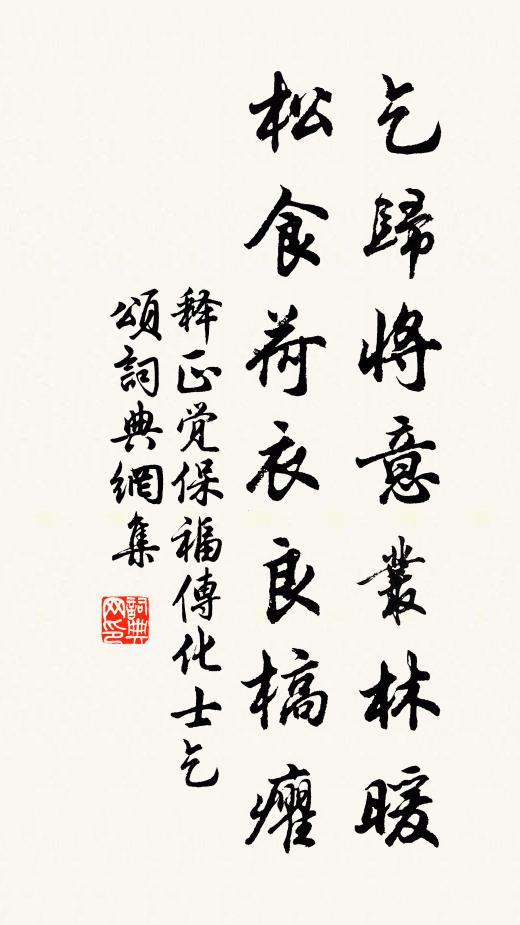 乞歸將意叢林暖
松食荷衣良槁癯
释正觉保福傳化士乞
頌詞典網集
詞典网印